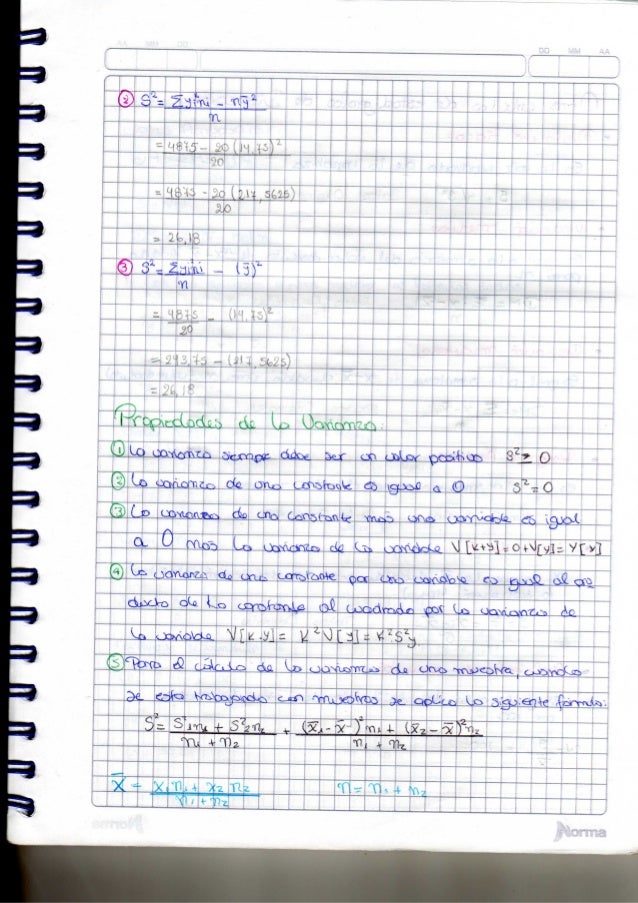 AA MM DD
DD MM AA
② S² = Σyi²ni - nȳ²
n
= 4875 - 20 (14,75)²
20
= 4875 - 20 (217,5625)
20
= 26,18
③ S² = Σyi²ni - (ȳ)²
n
= 4875 - (14,75)²
20
= 243,75 - (217,5625)
= 26,18
Propiedades de la Varianza.
① La varianza siempre debe ser un valor positivo S² ≥ 0
② La varianza de una constante es igual a 0 S² = 0
③ La varianza de una constante más una variable es igual
a 0 mas la varianza de la variable V[k+y] = 0+V[y] = V[y]
④ La varianza de una constante por una variable es igual al pro
ducto de la constante al cuadrado por la varianza de
la variable V[k.y] = K²V[y] = K²S²y
⑤ Para el cálculo de la varianza de una muestra, cuando
se esta trabajando con muestras se aplica la siguiente formula:
S² = S²₁n₁ + S²₂n₂ + (x̄₁ - x̄)²n₁ + (x̄₂ - x̄)²n₂
n₁ + n₂ n₁ + n₂
x̄ = x₁n₁ + x₂n₂ n = n₁ + n₂
n₁ + n₂
Norma